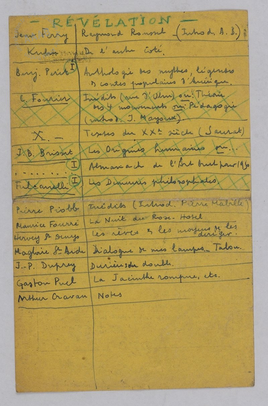 - RÉVÉLATION -
Jean Ferry Raymond Roussel (Introd. A. B.)
De l'autre côté
Benj. Péret Anthologie des mythes, légendes
& contes populaires d'Amérique
C. Fourier Inédits
4 mouvements ou Pédagogie
(introd. J.
X. - Textes du XXe siècle
J. P. Brisset Les Origines humaines ou ...
Almanach de l'Art brut pour 1950
Fulcanelli Les Demeures philosophales
Pierre Piobb Inédits (Introd. Pierre Mabille)
Maurice Fourré La Nuit du Rose-Hôtel
Hervey St Denys Les rêves & les moyens de les
diriger
Magloire St Aude Dialogue de mes lampes, Tabou
J.-P. Duprey Derrière son double
Gaston Puel La Jacinthe rompue, etc.
Arthur Cravan Notes